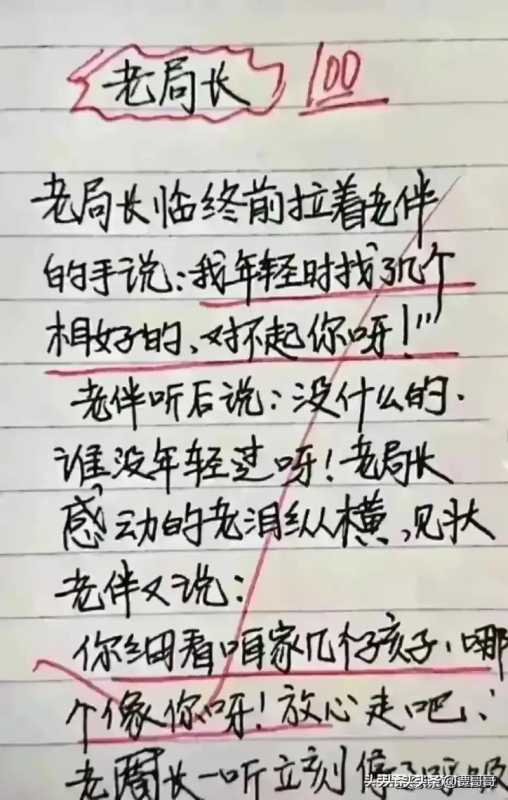 老局长
100
老局长临终前拉着老伴
的手说:我年轻时找了几个
相好的、对不起你呀!"
老伴听后说:没什么的.
谁没年轻过呀!老局长
感动的老泪纵横,见状
老伴又说:
你细看咱家几个孩子,哪
个像你呀!放心走吧.
老局长一听立刻停了呼吸
头条 @覃哥哥